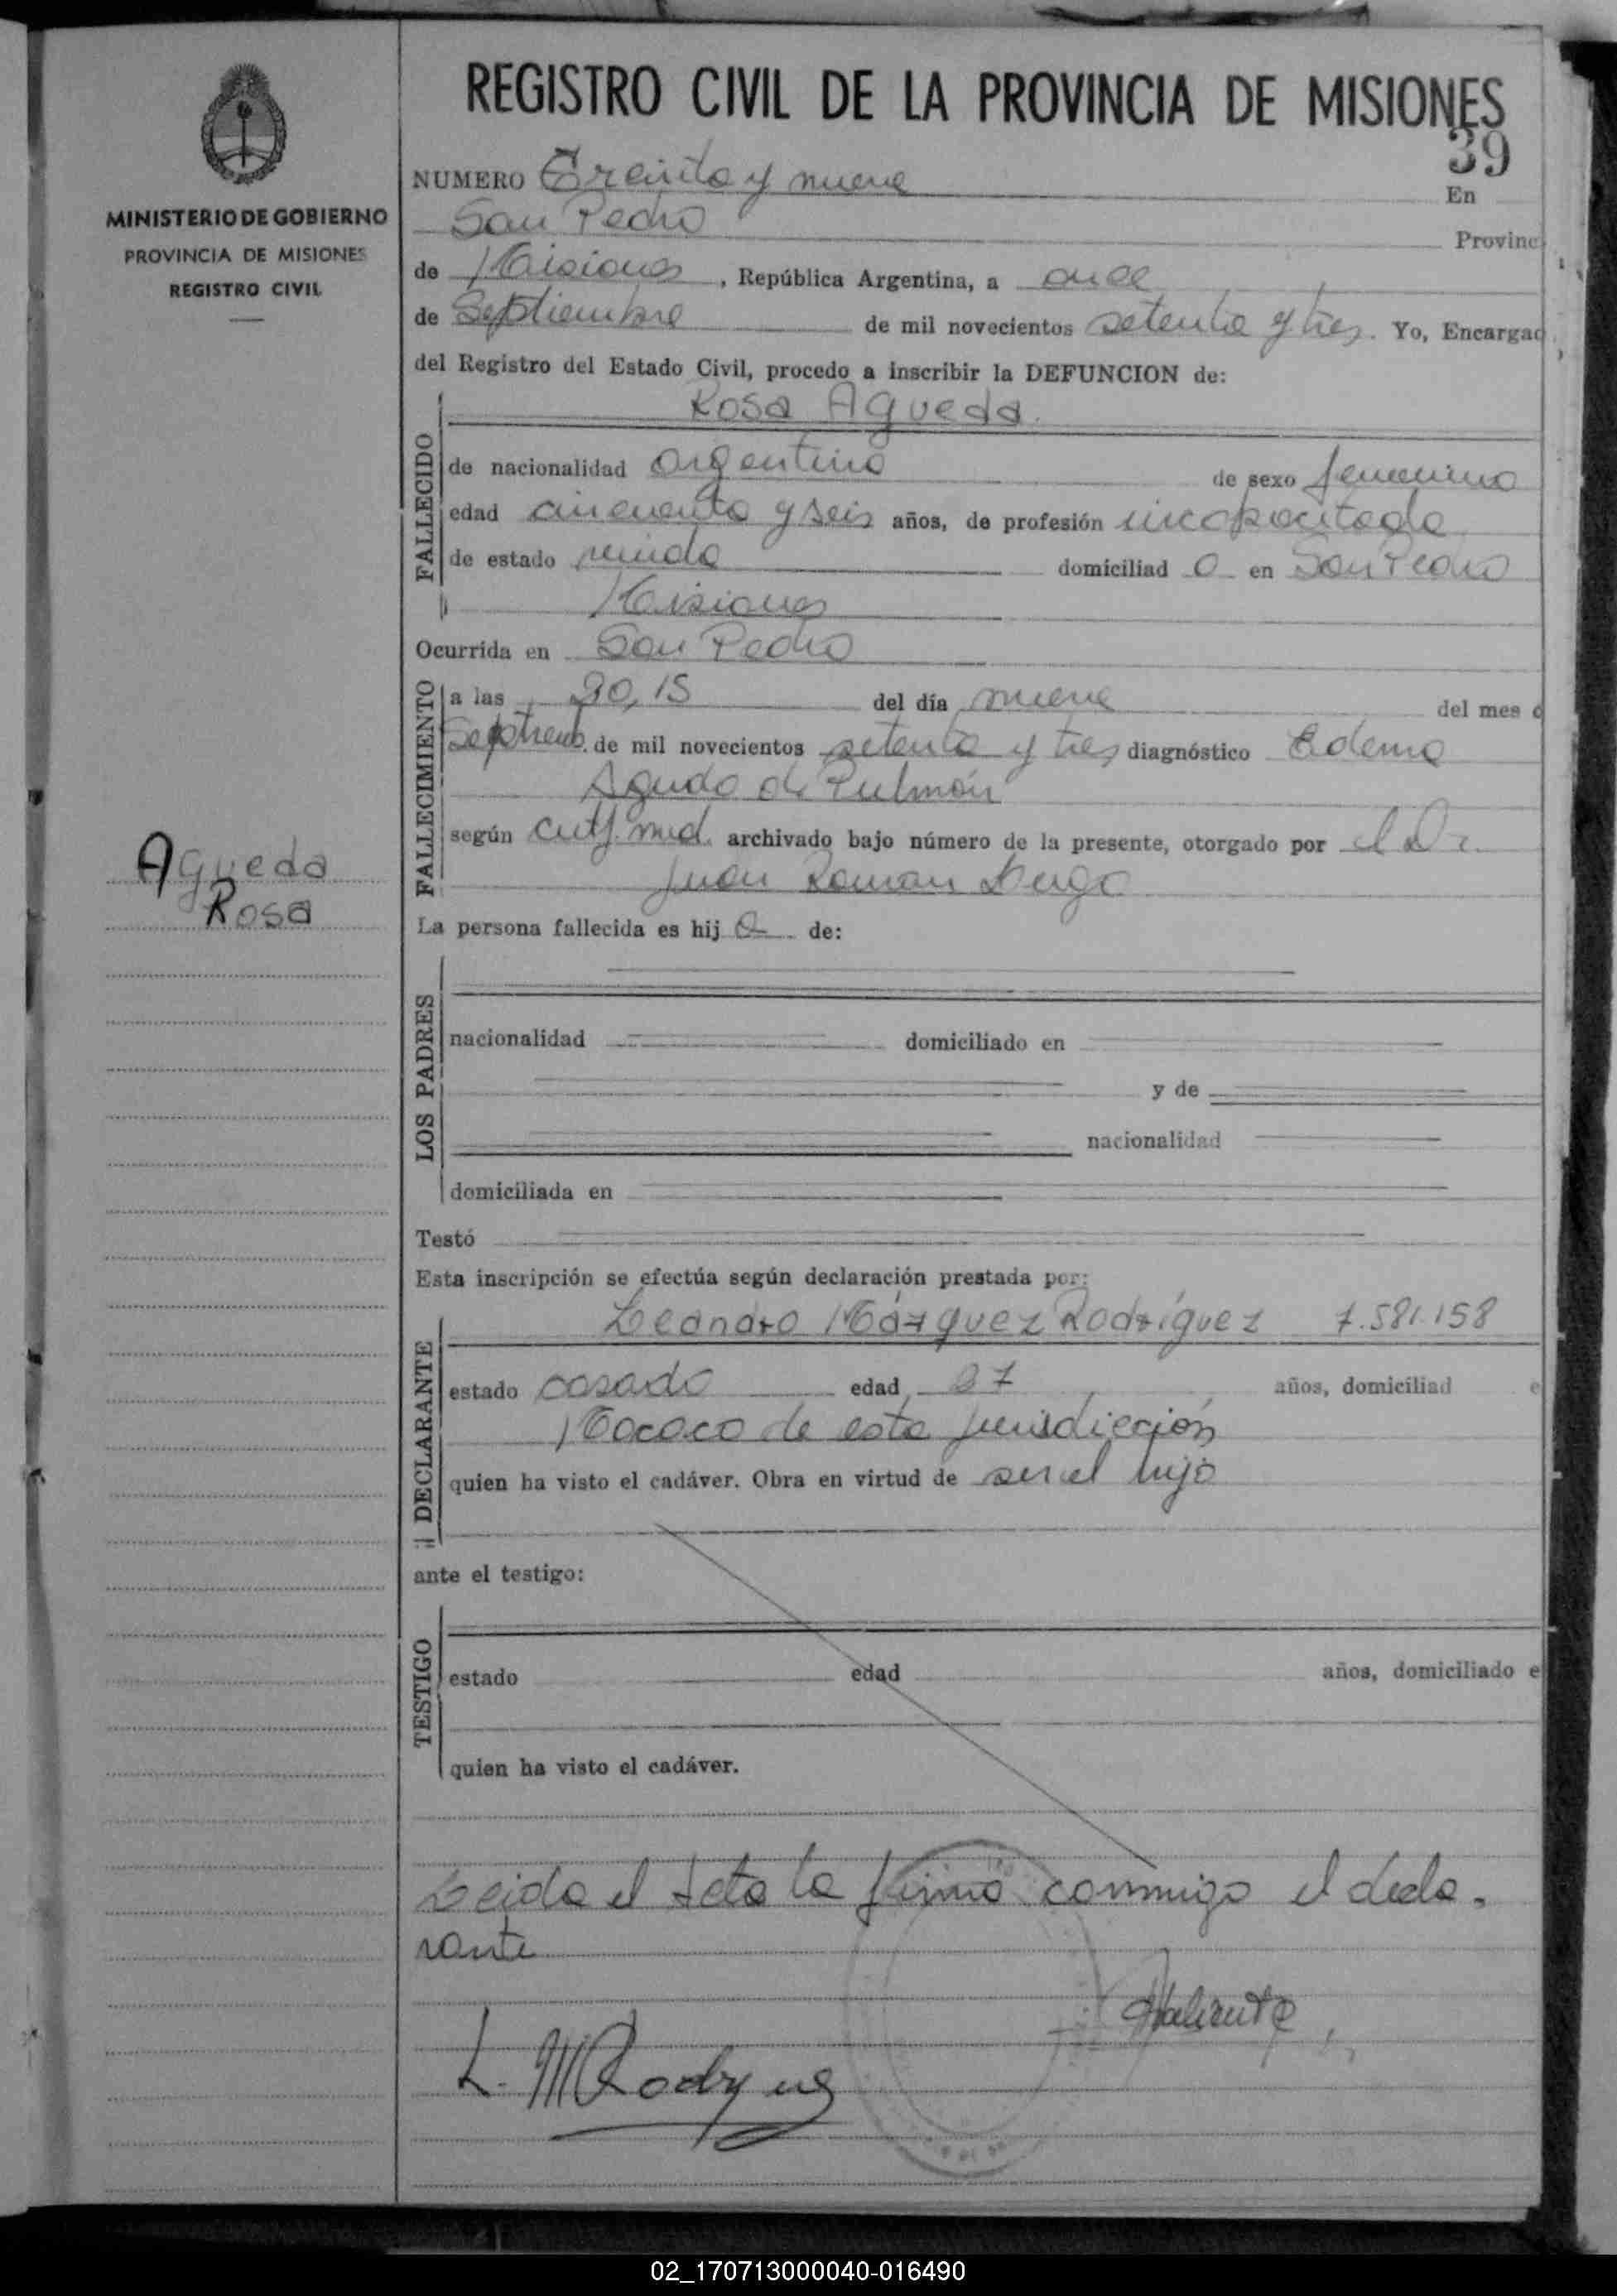 REGISTRO CIVIL DE LA PROVINCIA DE MISIONES
39
MINISTERIO DE GOBIERNO
PROVINCIA DE MISIONES
REGISTRO CIVIL
NUMERO Treinta y nueve En
San Pedro Provinc
de Misiones , República Argentina, a once
de Septiembre de mil novecientos setenta y tres. Yo, Encargad
del Registro del Estado Civil, procedo a inscribir la DEFUNCION de:
Rosa Agueda
FALLECIDO
de nacionalidad argentina de sexo femenino
edad cincuenta y seis años, de profesión incapacitada
de estado viuda domiciliad a en San Pedro
Misiones
Ocurrida en San Pedro
FALLECIMIENTO
a las 20,15 del día nueve del mes d
Septiemb. de mil novecientos setenta y tres diagnóstico Edema
Agudo de Pulmón
según certf. med. archivado bajo número de la presente, otorgado por el Dr.
Juan Roman
Agueda
Rosa
La persona fallecida es hij a de:
LOS PADRES
nacionalidad domiciliado en
y de
nacionalidad
domiciliada en
Testó
Esta inscripción se efectúa según declaración prestada por:
DECLARANTE
Leandro Márquez Rodríguez 7.581.158
estado casado edad 27 años, domiciliad e
Mococo de esta jurisdicción
quien ha visto el cadáver. Obra en virtud de ser el hijo
ante el testigo:
TESTIGO
estado edad años, domiciliado e
quien ha visto el cadáver.
Leida el Acta la firma conmigo el decla-
rante
L. M Rodrguez
02_170713000040-016490